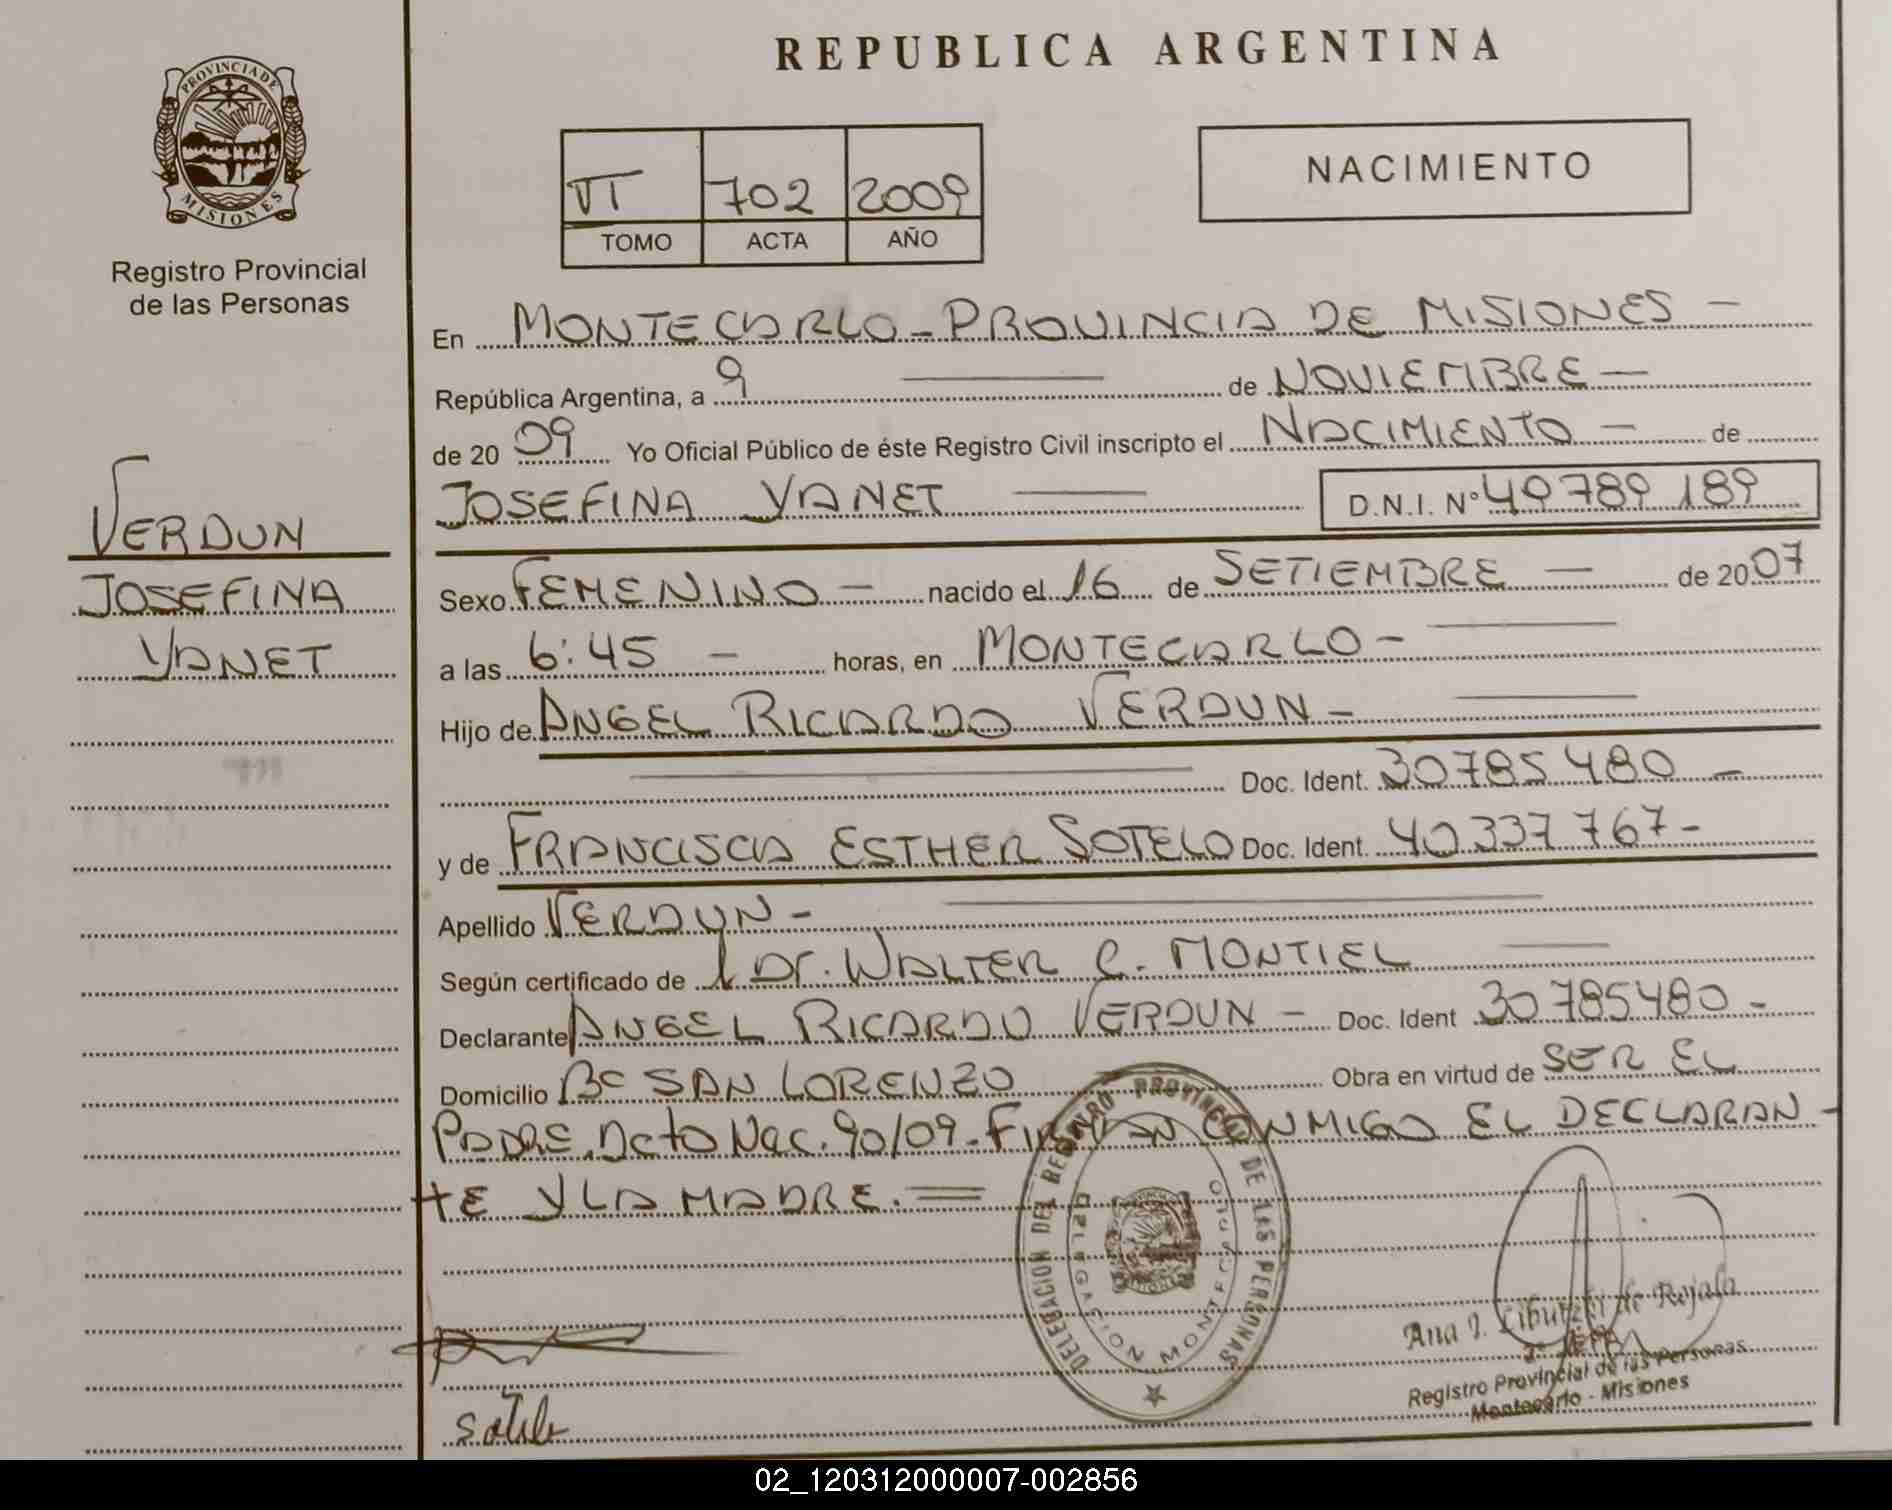 REPUBLICA ARGENTINA
PROVINCIA DE
MISIONES
Registro Provincial
de las Personas
VI 702 2009
TOMO ACTA AÑO
NACIMIENTO
VERDUN
JOSEFINA
YANET
En MONTECARLO - PROVINCIA DE MISIONES -
República Argentina, a 9 de NOVIEMBRE -
de 2009 Yo Oficial Público de éste Registro Civil inscripto el NACIMIENTO - de
JOSEFINA YANET D.N.I. Nº 49789 189
Sexo FEMENINO - nacido el 16 de SETIEMBRE - de 2007
a las 6:45 - horas, en MONTECARLO -
Hijo de ANGEL RICARDO VERDUN -
Doc. Ident. 30785480 -
y de FRANCISCA ESTHER SOTELO Doc. Ident. 40337767 -
Apellido VERDUN -
Según certificado de Dr. WALTER C. MONTIEL
Declarante ANGEL RICARDO VERDUN - Doc. Ident 30785480 -
Domicilio Bº SAN LORENZO Obra en virtud de SER EL
PADRE. Dcto Nac. 90/09 - FIRMAN CONMIGO EL DECLARAN-
TE Y LA MADRE.
DELEGACION DEL REGISTRO PROVINCIAL DE LAS PERSONAS
DELEGACION MONTECARLO
Ana I. de Rojala
Registro Provincial de las Personas
Montecarlo - Misiones
02_120312000007-002856